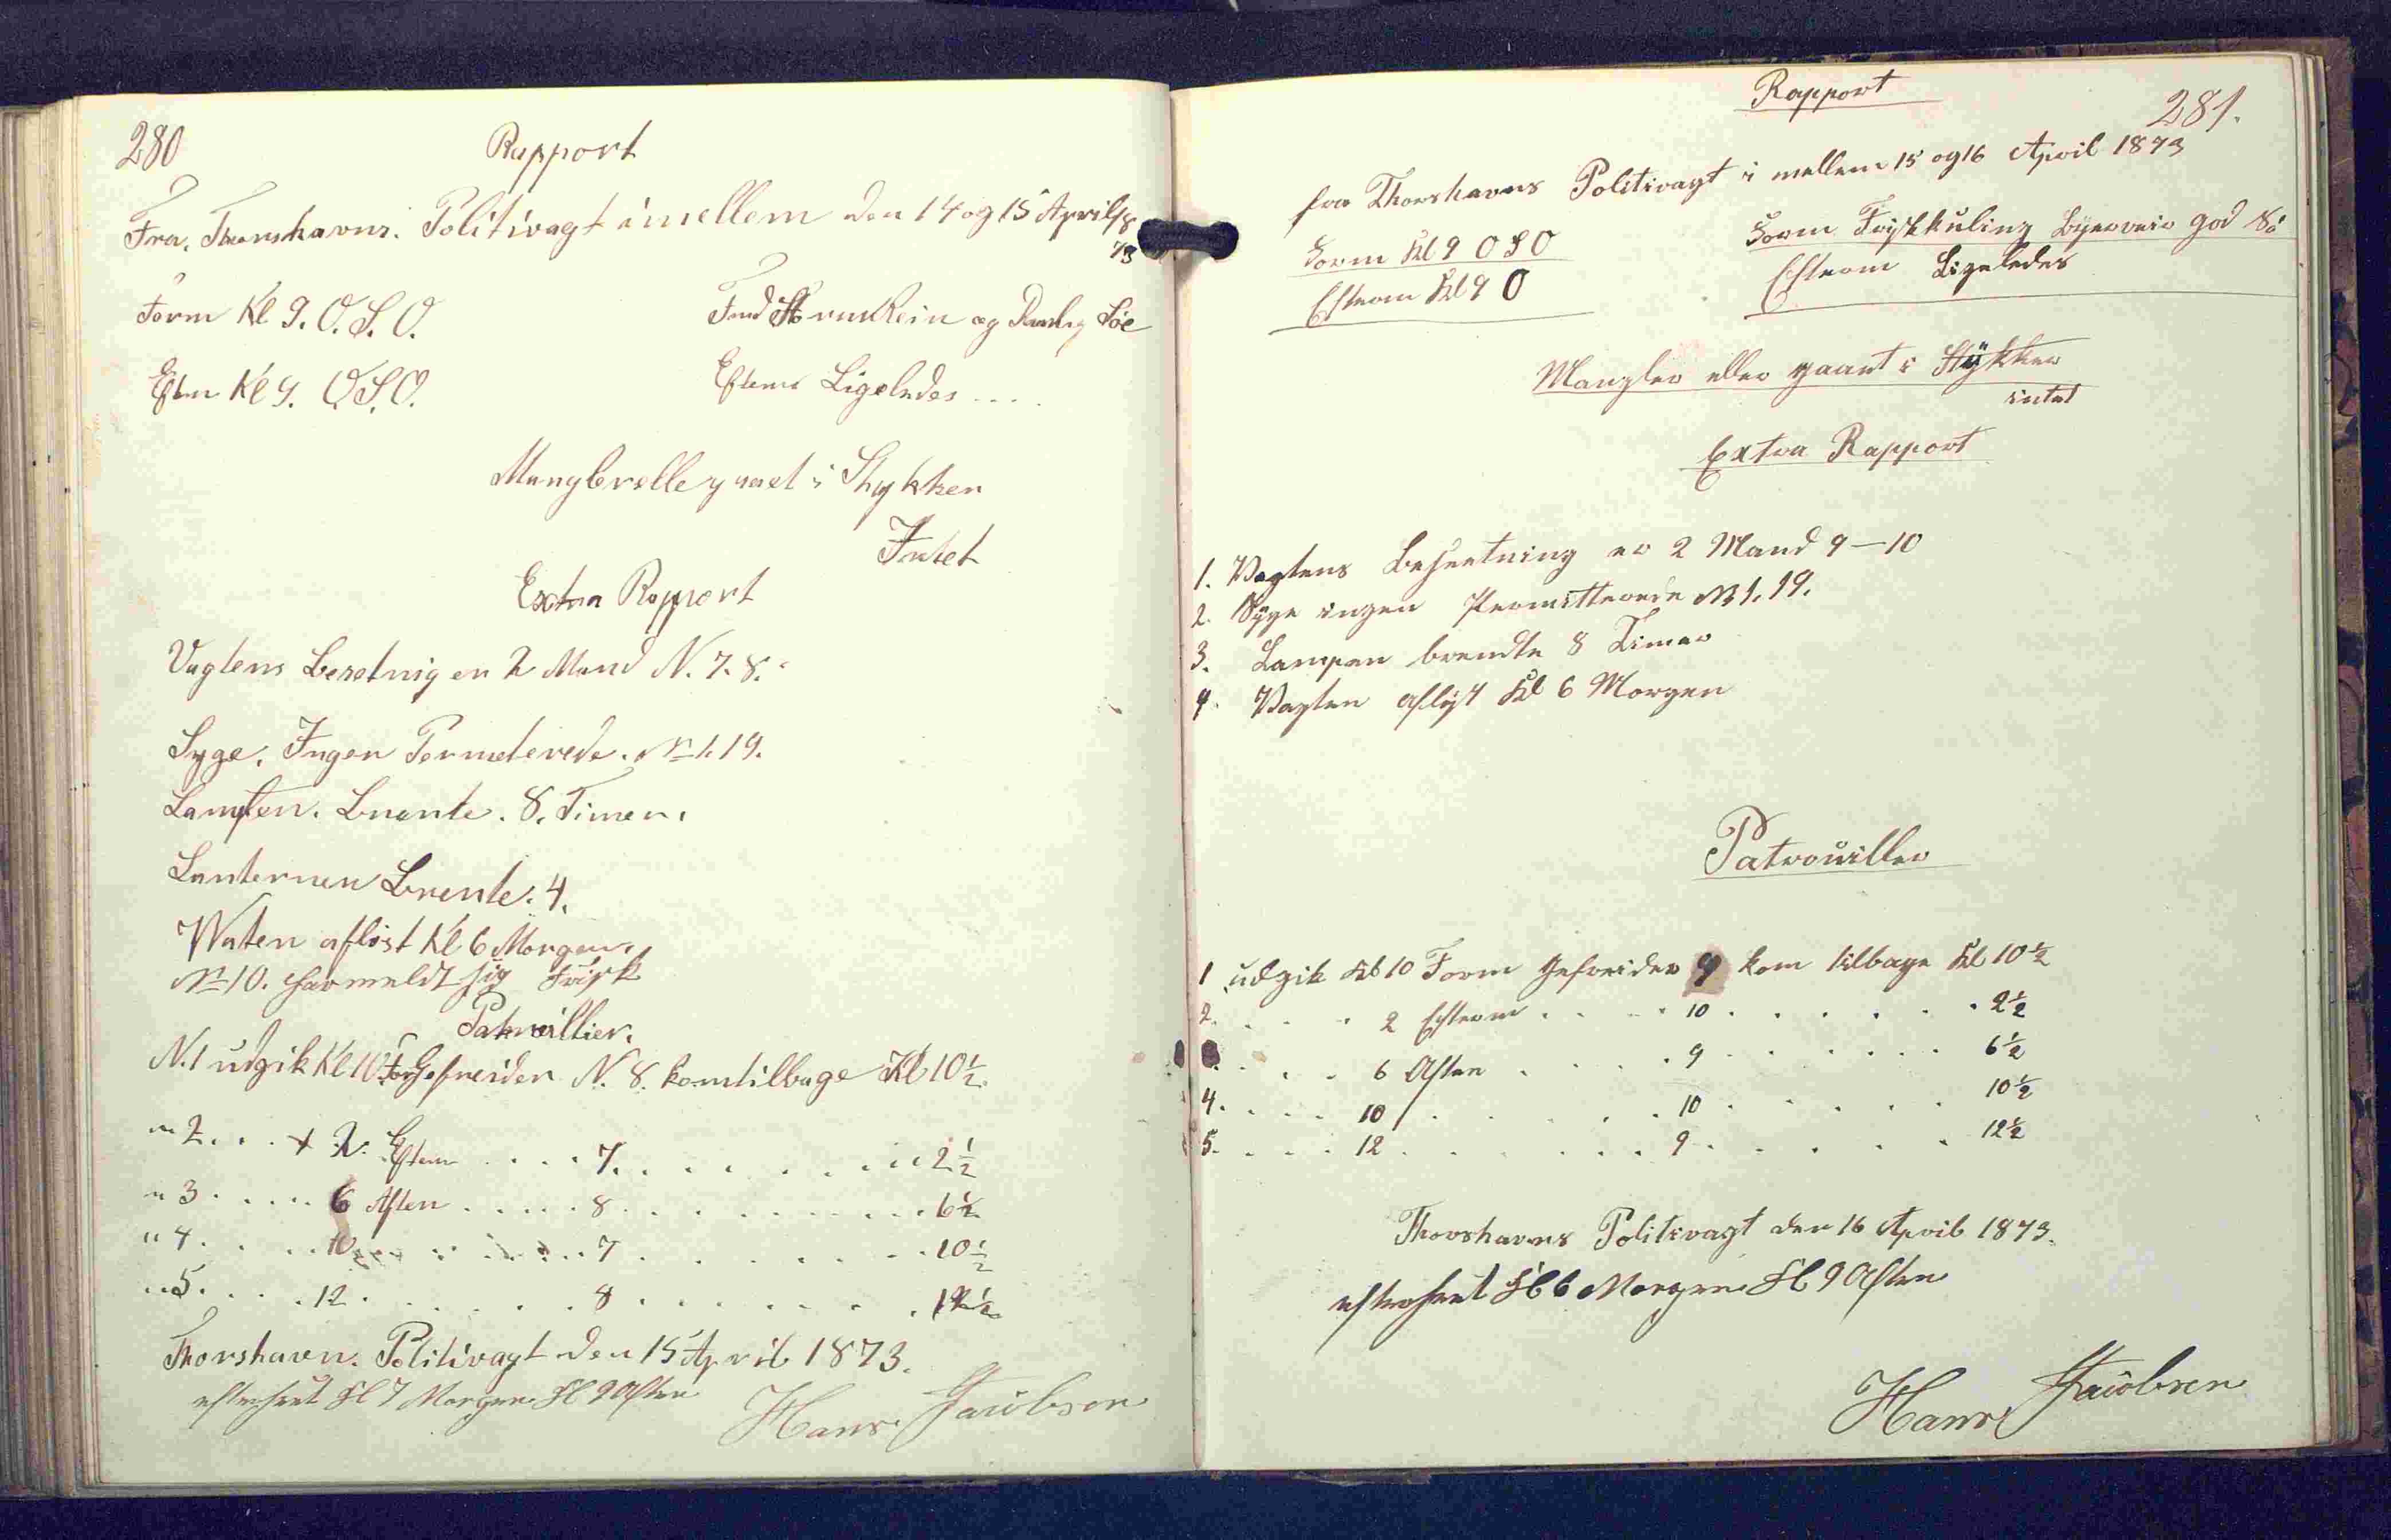 280
Rapport
Fra. Thorshavns. Politivagt imellem den 14 og 15 April 18
73
Form Kl 9. O. S. O.
og Søe
Eftm Kl 9. O. S. O.
Eftem Ligeledes ....
Mangler elle gaaet i Stykker
Intet
Extra Rapport
Vagtens Besetnig er 2 Mand N. 7. 8.
Syge. Ingen Permeterede. No 1. 19.
Lampen. Brente. 8. Timer.
Lanternen Brente. 4.
Waten afløst Kl 6 Morgen.
No 10. har meldt sig Frisk
Patroillier.
N. 1 udgik Kl 10 For Gefreider N. 8. kom tilbage Kl 10 ½
" 2 . . . 2. Eftem . . . 7. . . . . . . " 2 ½
" 3 . . . . . 6 Aften . . . . . 8 . . . . . . . . . . 6 ½
" 4 . . . . 10 . . . . . . 7 . . . . . . . 10 ½
" 5. . . . 12 . . . . . . 8 . . . . . . . 12 ½
Thorshaven. Politivagt den 15 April 1873.
efterseet Kl 7 Morgen Kl 9 Aften
Hans Jacobsen
Rapport
281.
fra Thorshavns Politivagt i mellem 15 og 16 April 1873
Form Kl 9 O S O
Form Friskkuling Byerveir god Sö
Efterm Kl 9 O
Efterm Ligeledes
Mangler eller gaaet i Stÿkker
intet
Extra Rapport
1. Vagtens Besætning er 2 Mand 9 — 10
2. Syge ingen Permitterede No 1. 19.
3. Lampen brendte 8 Timer
4. Vagten afløst Kl 6 Morgen
Patrouiller
1 udgik Kl 10 Form Gefreider 9 kom tilbage Kl 10 ½
2. . . . 2 Efterm . . . . 10 . . . . . . 2 ½
. . . . 6 Aften . . . . 9 . . . . . . 6 ½
4. . . . 10 . . . . . . 10 . . . . . 10 ½
5. . . . 12 . . . . . . 9 . . . . . 12 ½
Thorshavns Politivagt den 16 April 1873.
efterseet Kl 6 Morgen Kl 9 Aften
Hans Jacobsen